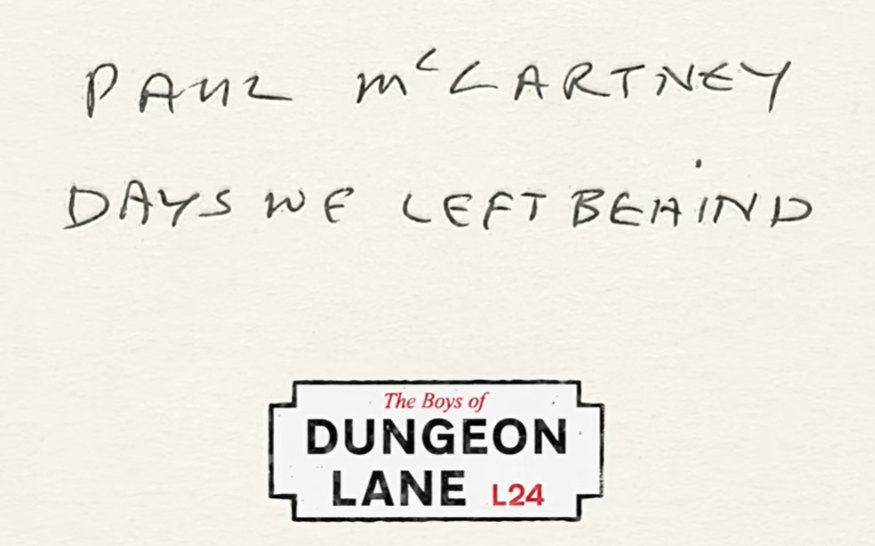 PAUL McCARTNEY
DAYS WE LEFT BEHIND
The Boys of
DUNGEON
LANE L24